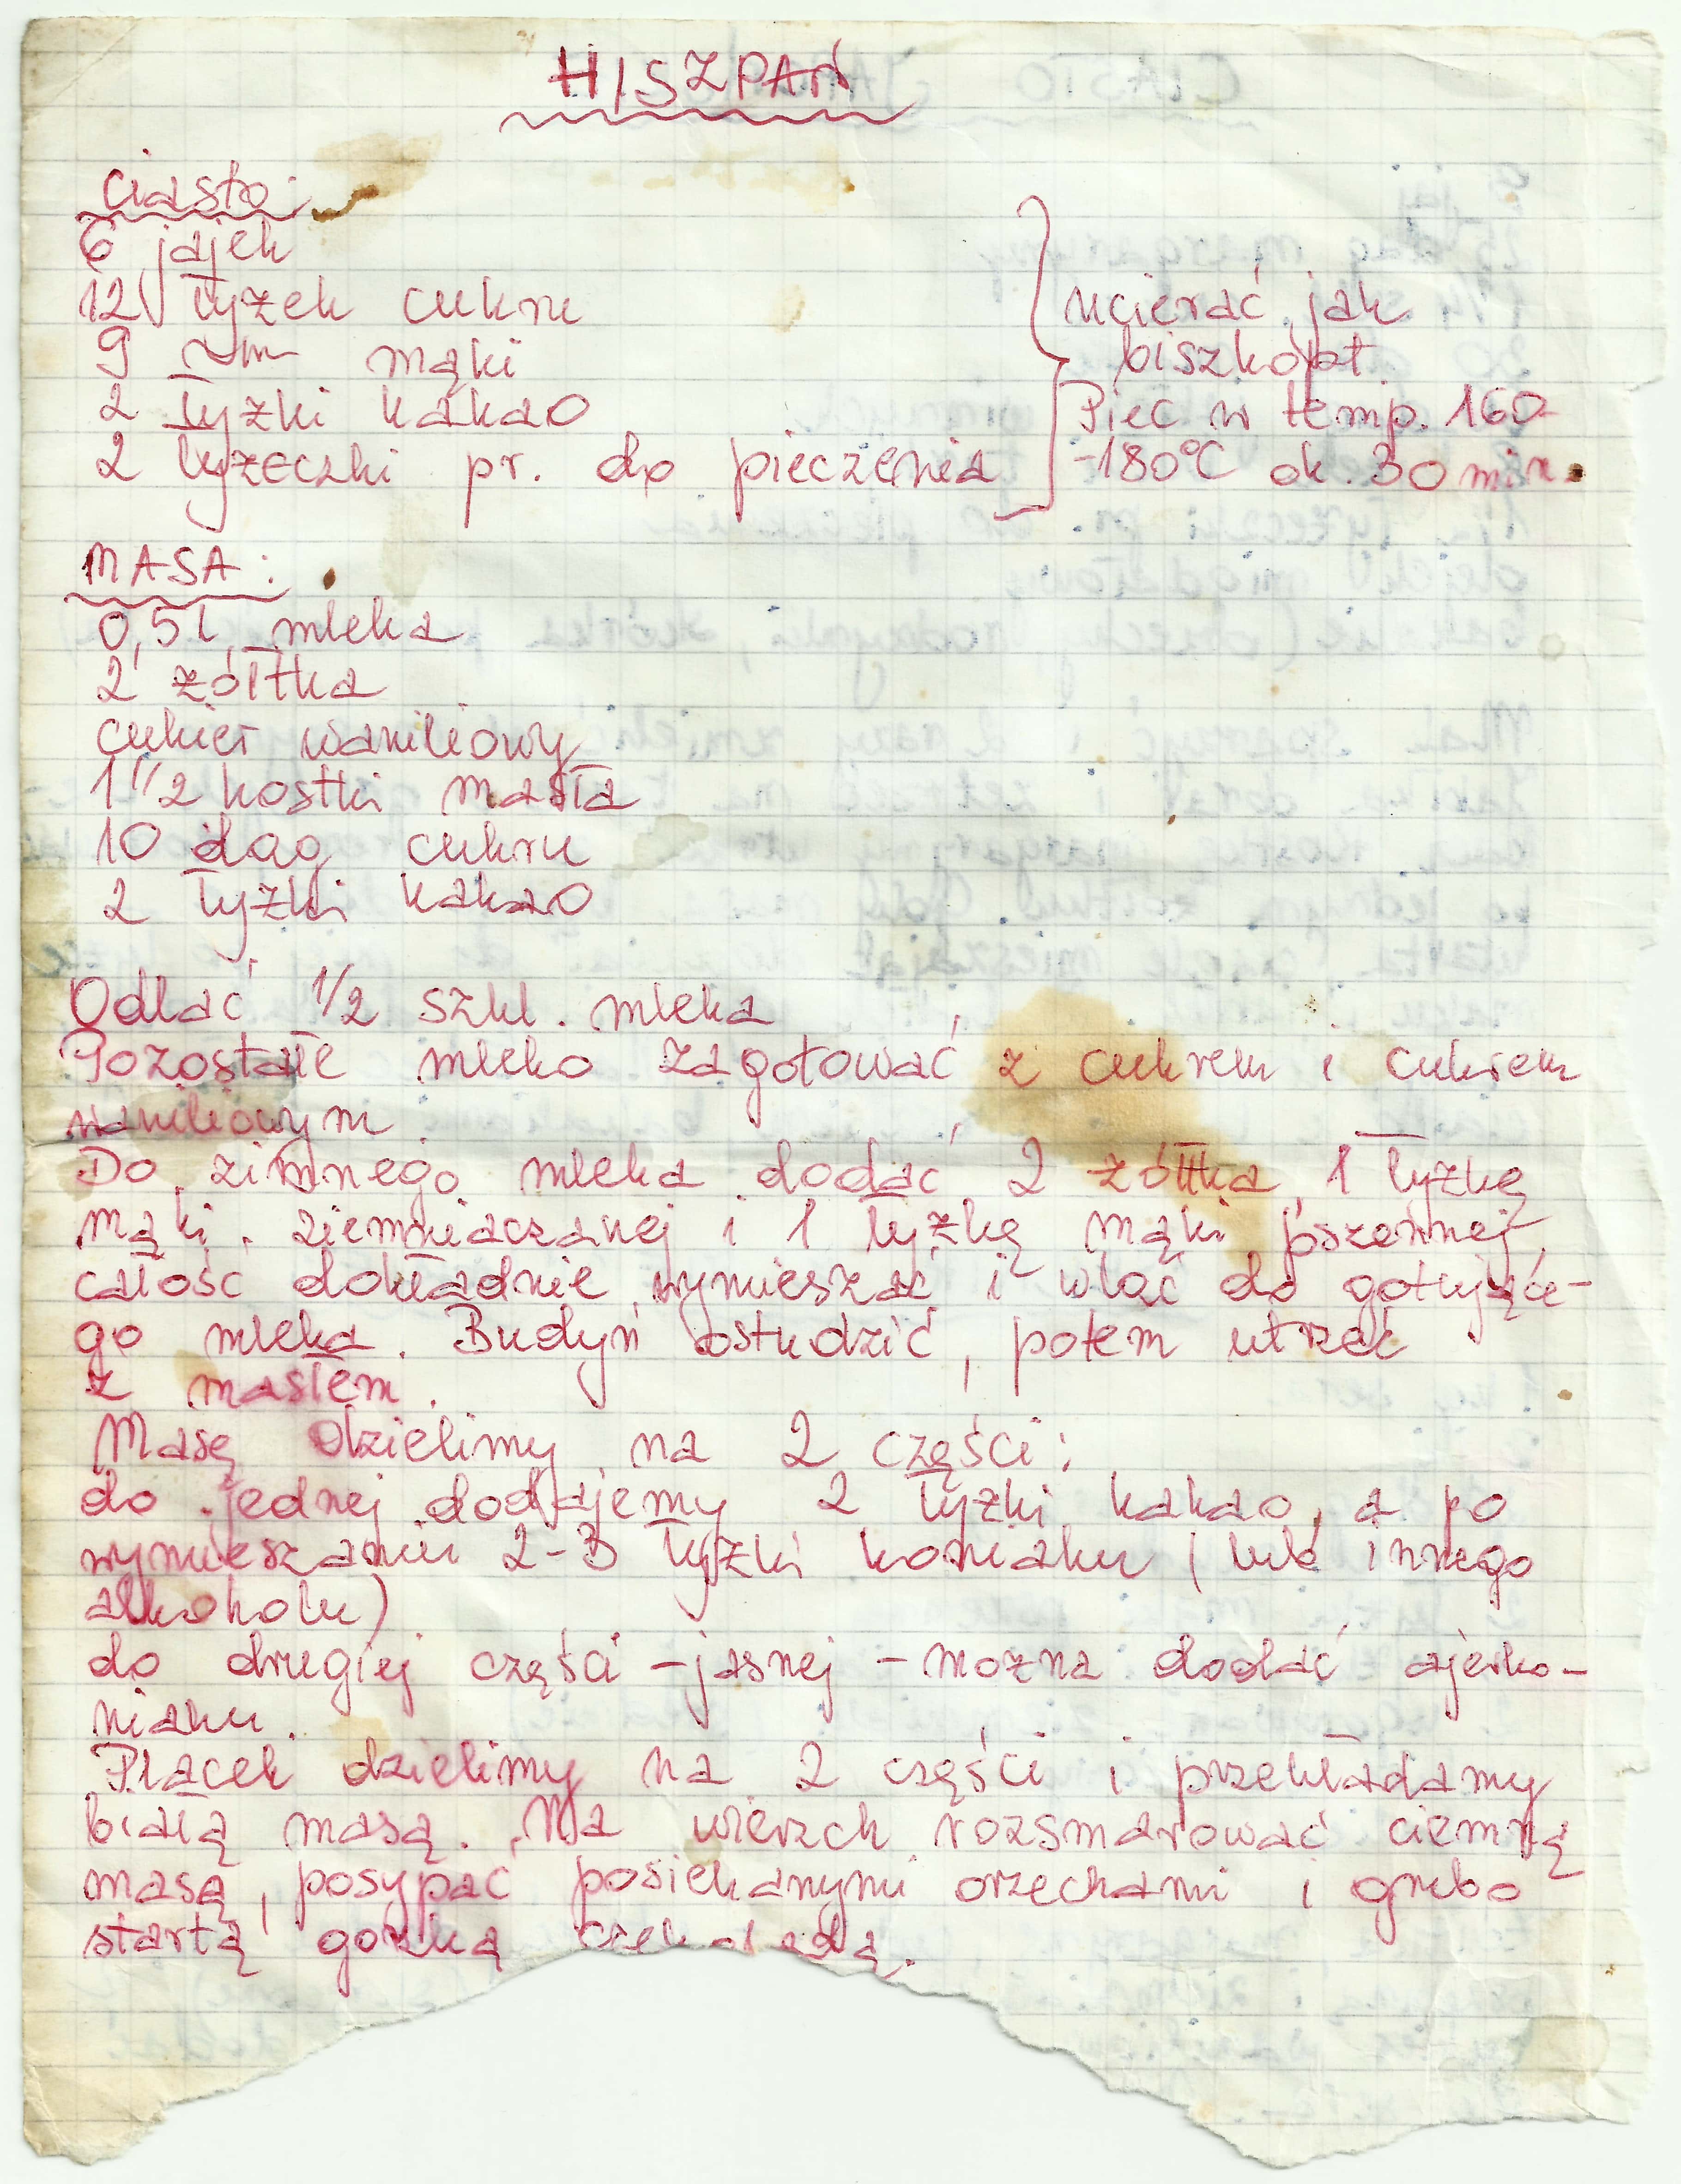 HISZPAŃ
ciasto:
6 jajek
12 łyżek cukru
9 —"— mąki
2 łyżki kakao
2 łyżeczki pr. do pieczenia
ucierać jak
biszkopt
Piec w temp. 160-
-180°C ok. 30 min.
MASA:
0,5 l mleka
2 żółtka
cukier waniliowy
1 1/2 kostki masła
10 dag cukru
2 łyżki kakao
Odlać 1/2 szkl. mleka
Pozostałe mleko zagotować z cukrem i cukrem
waniliowym
Do zimnego mleka dodać 2 żółtka, 1 łyżkę
mąki ziemniaczanej i 1 łyżkę mąki pszennej,
całość dokładnie wymieszać i wlać do gotujące-
go mleka. Budyń ostudzić, potem utrzeć
z masłem.
Masę dzielimy na 2 części:
do jednej dodajemy 2 łyżki kakao, a po
wymieszaniu 2-3 łyżki koniaku (lub innego
alkoholu)
do drugiej części - jasnej - można dodać ajerko-
niaku.
Placek dzielimy na 2 części i przekładamy
białą masą. Na wierzch rozsmarować ciemną
masą, posypać posiekanymi orzechami i grubo
startą gorzką czekoladą.